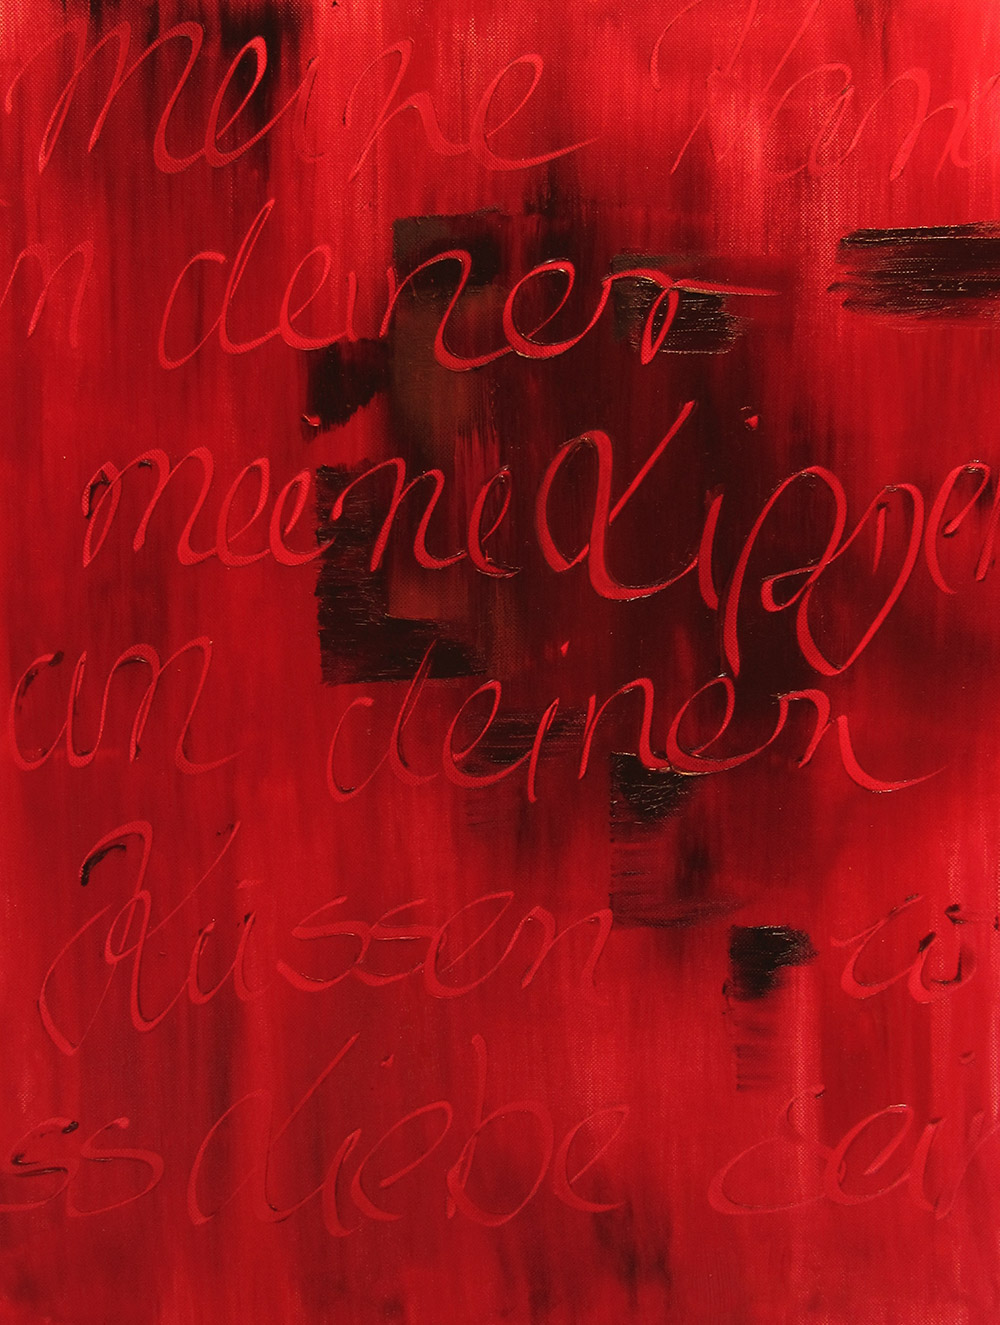 meine Han
in deiner
meine Lippen
an deinen
Küssen
ss Liebe sei